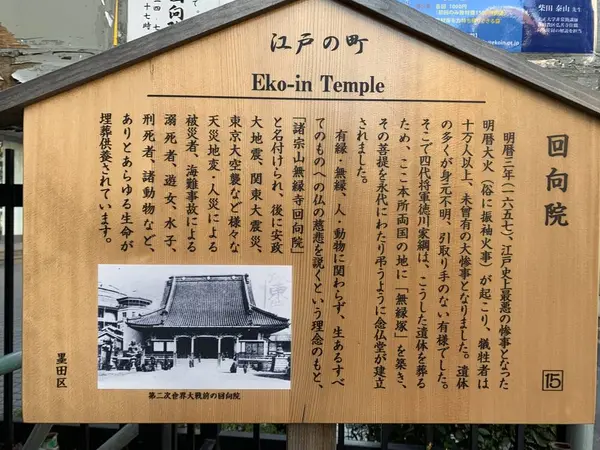 江戸の町
Eko-in Temple
回向院
明暦三年(一六五七)、江戸史上最悪の惨事となった
明暦大火(俗に振袖火事)が起こり、犠牲者は
十万人以上、未曾有の大惨事となりました。遺体
の多くが身元不明、引取り手のない有様でした。
そこで四代将軍徳川家綱は、こうした遺体を葬る
ため、ここ本所両国の地に「無縁塚」を築き、
その菩提を永代にわたり弔うように念仏堂が建立
されました。
有縁・無縁、人・動物に関わらず、生あるすべ
てのものへの仏の慈悲を説くという理念のもと、
「諸宗山無縁寺回向院」
と名付けられ、後に安政
大地震、関東大震災、
東京大空襲など様々な
天災地変・人災による
被災者、海難事故による
溺死者、遊女、水子、
刑死者、諸動物など、
ありとあらゆる生命が
埋葬供養されています。
第二次世界大戦前の回向院
墨田区
15
柴田 泰山